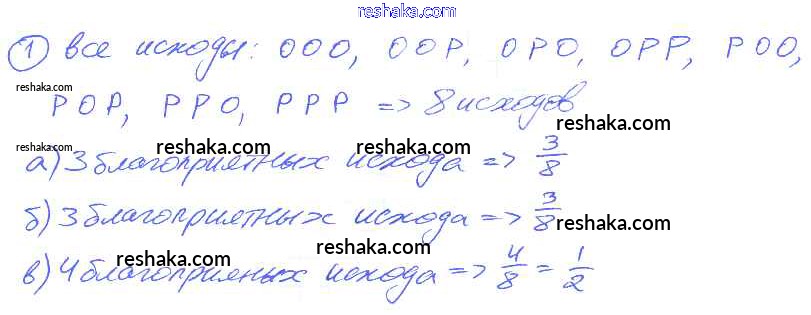 reshaka.com
1 все исходы: ООО, ООР, ОРО, ОРР, РОО,
reshaka.com reshaka.com
РОР, РРО, РРР => 8 исходов
reshaka.com reshaka.com reshaka.com
а) 3 благоприятных исхода => 3/8
б) 3 благоприятных исхода => 3/8
reshaka.com reshaka.com reshaka.com
в) 4 благоприяных исхода => 4/8 = 1/2